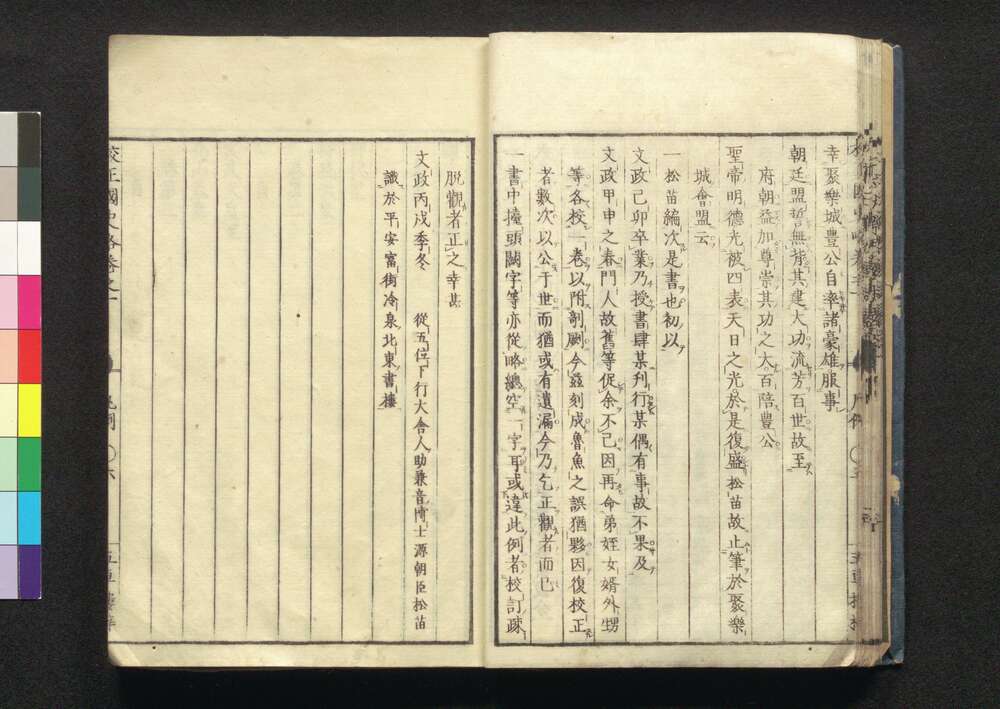 幸聚樂城豐公自率諸豪雄服事
朝廷盟誓無背其建大功流芳百世故至
府朝益加尊崇其功之大百陪豐公
聖帝明德光被四表天日之光於是復盛松苗故止筆於聚樂
城會盟云
一松苗編次是書也初以
文政己卯卒業乃授書肆某刋行某偶有事故不果及
文政甲申之春門人故舊等促余不已因再命弟姪女婿外甥
等各校一卷以附剞劂今茲刻成魯魚之誤猶夥因復校正
者數次以公于世而猶或有遺漏今乃乞正觀者而已
一書中擡頭闕字等亦從略總空一字耳或違此例者校訂疎
脱觀者正之幸甚
文政丙戌季冬　從五位下行大舍人助兼音博士源朝臣松苗
識於平安富街冷泉北東書樓
校正國史略卷之一
凡例
〇六